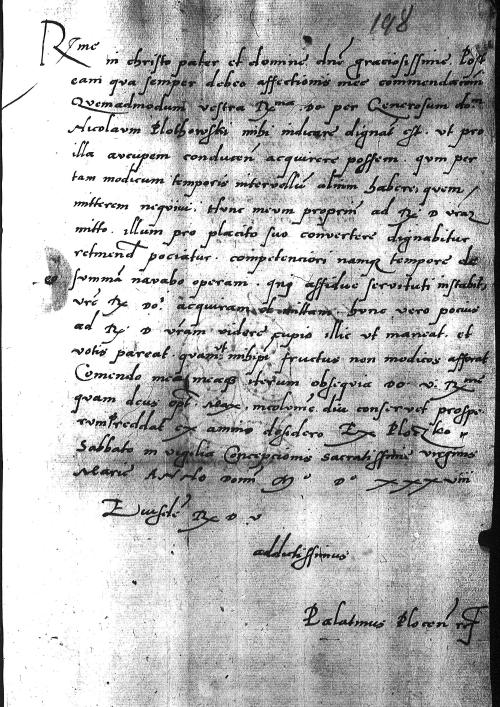 198
Rme
in christo pater et domine dne graciosissime. Post
eam qua semper debeo affectionis mee commendacionem
Quemadmodum vestra Rma Do per Generosum dom
Nicolaum Plothowski mihi indicare dignat est. ut pro
illa aucupem conducen acquirere possem. qum per
tam modicum temporis intervellu alium habere, quem
mitterem nequivi. Hunc meum propriu ad R D vram
mitto. illum pro placito suo convertere dignabitur
retinend pociatur. competenciori namq tempore de
summa navabo operam. qnq assidue servituti instabit
vre R Do. acquiram hunc vero pocius
ad R D vram videre cupio illic ut maneat. et
votis pareat quam ut mihi fructus non modicos afferat
Comendo mea meaq iterum obsequia Do v. Rme
quam deus opt. Max. incolume diu conservet prospe
rumq reddat ex animo desidero Ex Ploczko
Sabbato in vigilia Concepcionis sacratissime virginis
Marie Anno Domi M D XXXVIII
Eiusde R D V
addictissimus
Palatinus Plocen